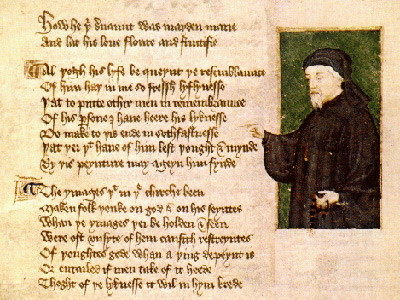 How he þi seruaunt was mayden marie
And lat his loue floure and fructifie
Al þogh his lyfe be queynt þe resemblaunce
Of him haþ in me so fressh lyflynesse
Þat to putte othir men in remembraunce
Of his persone I haue heere his lyknesse
Do make to þis ende in sothfastnesse
Þat þei þt haue of him lest þought & mynde
By þis peynture may ageyn him fynde
The ymages þt in þe chirche been
Maken folk þenke on god & on his seyntes
Whan þe ymages þei beholden & seen
Were oft vnsyte of hem causith restreyntes
Of þoughtes gode whan a þing depeynt is
Or entailed if men take of it heede
Thoght of þe lyknesse it wil in hym brede